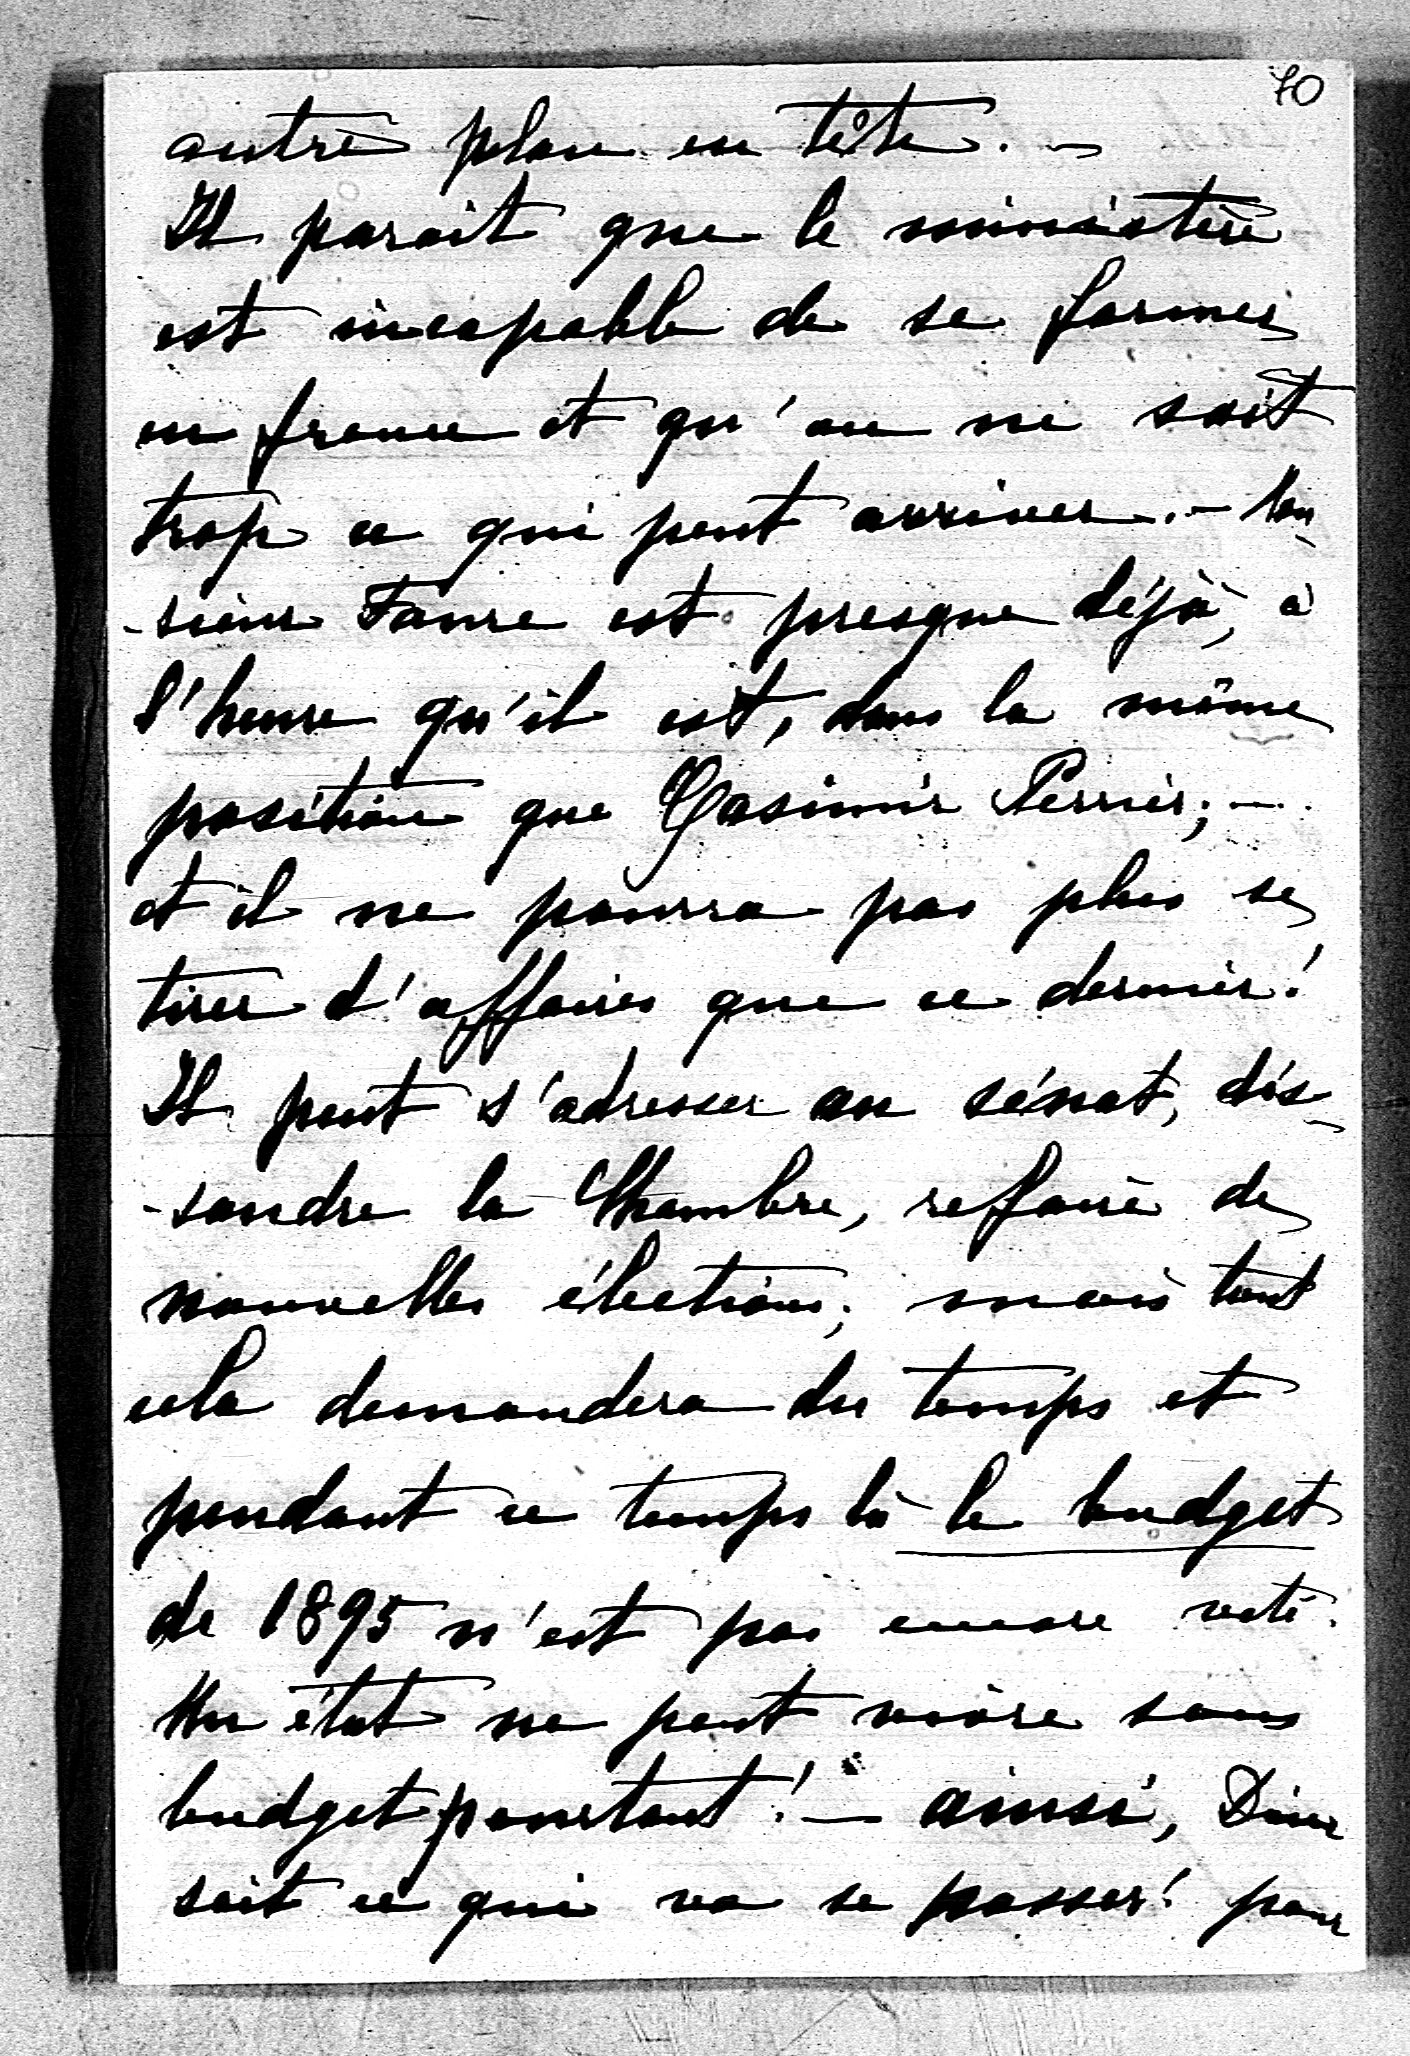 70
autre plan en tête. –
Il parait que le ministère
est incapable de se former
en france et qu'on ne sait
trop ce qui peut arriver. – Mon-
-sieur Faure est presque déjà, à
l'heure qu'il est, dans la même
position que Casimir Perrier; –
et il ne pourra pas plus se
tirer d'affaires que ce dernier!
Il peut s'adresser au sénat, dis-
-soudre la Chambre, refaire de
nouvelles élections; mais tout
cela demandera du temps et
pendant ce temps là le budget
de 1895 n'est pas encore voté.
Un état ne peut vivre sans
budget pourtant! – ainsi, Dieu
sait ce qui va se passer! pour